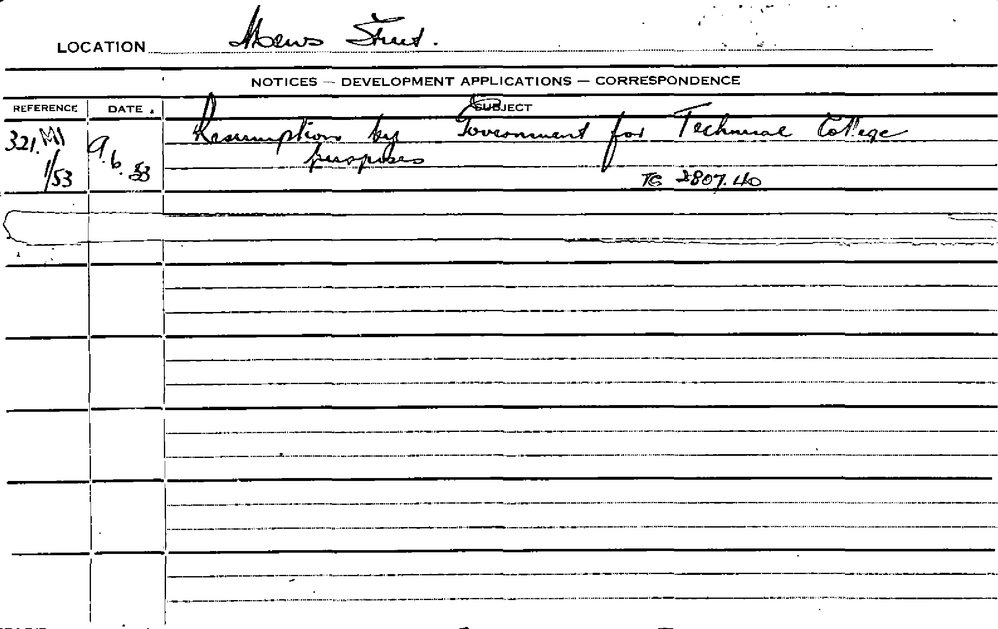 LOCATION Mews Street.
NOTICES — DEVELOPMENT APPLICATIONS — CORRESPONDENCE
REFERENCE DATE SUBJECT
321.M1 9.6.53 Resumption by Government for Technical College
purposes
1/53 TG 2807.40